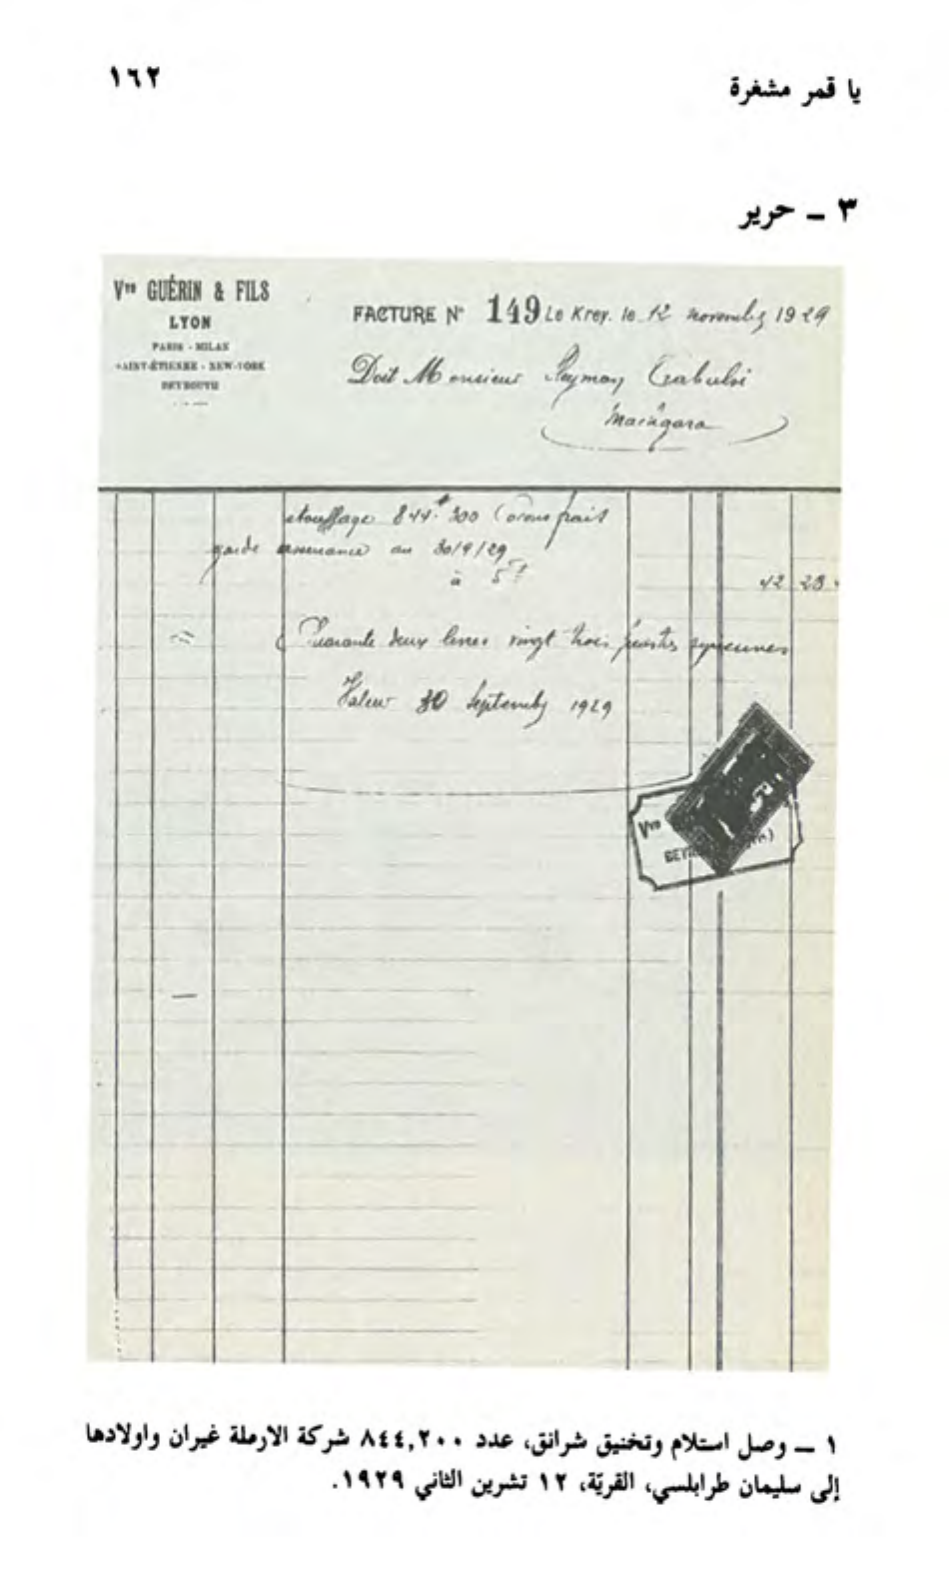 يا قمر مشغرة
١٦٢
٣ ــ حرير
Vve GUÉRIN & FILS
LYON
PARIS - MILAN
SAINT-ÉTIENNE - NEW-YORK
BEYROUTH
FACTURE N° 149 Le Krey, le 12 novembre 1929
Doit Monsieur Sleyman Trabulsi
Machgara
etouffage 844# 300 Cocons frais
garde assurance au 30/9/29
à 5
42 23
Quarante deux livres vingt trois piastres syriennes
Valeur 30 Septembre 1929
Vve
BEY
١ ــ وصل استلام وتخنيق شرانق، عدد ٨٤٤,٢٠٠ شركة الارملة غيران واولادها
إلى سليمان طرابلسي، القريّة، ١٢ تشرين الثاني ١٩٢٩.